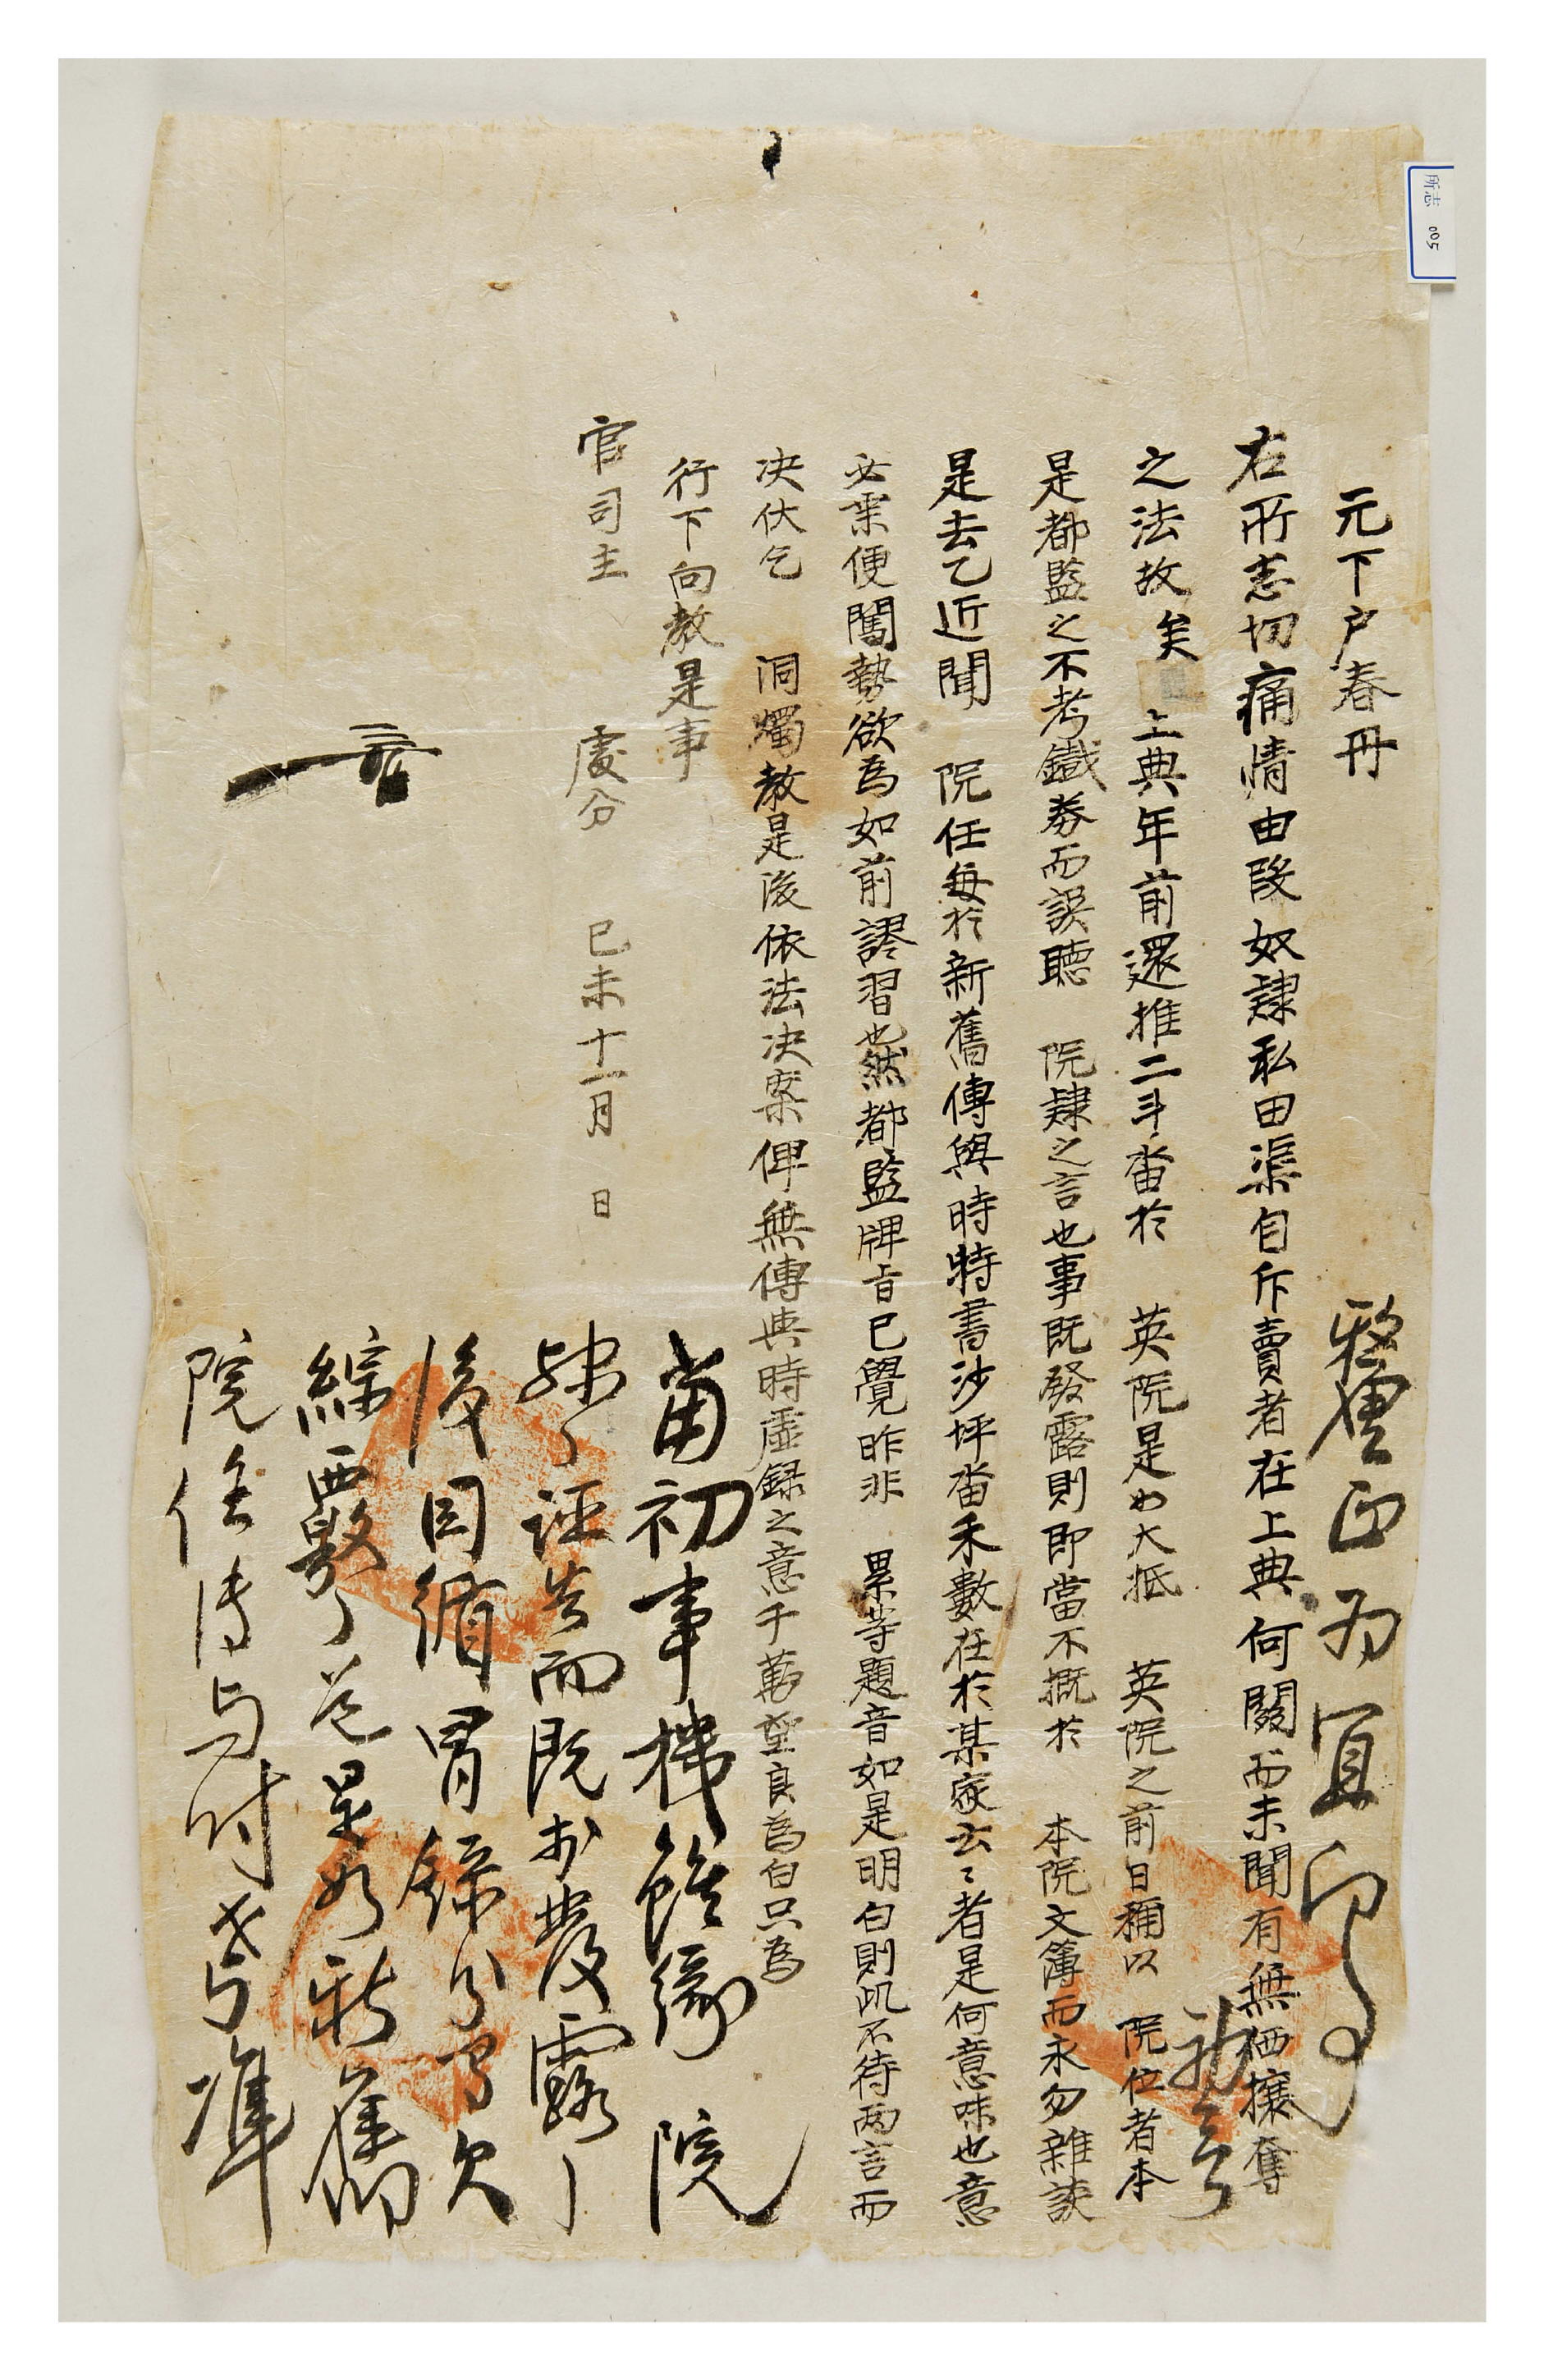 所志 005
元下戶春丹
右所志切痛情由段奴隷私田渠自斥賣者在上典何關而未聞有無憑攘奪
之法故矣 上典年前還推二斗畓於 英院是如大抵 英院之前日稱以 院位者本
是都監之不考鐵券而誤聽 院隷之言也事旣發露則卽當不摡於 本院文簿而永勿雜談
是去乙近聞 院任每於新舊傳與時特書沙坪畓禾數在於某家云云者是何意味也意
必乘便闖勢欲爲如前謬習也然都監牌旨已覺昨非 累等題音如是明白則此不待兩言而
決伏乞 洞燭敎是後依法決案俾無傳與時虛錄之意千萬望良爲白只爲
行下向敎是事
官司主 處分 己未十一月 日
當初事機雖緣 院
隷之誣告而旣於發露之
後因循冒錄
綜覈之道是如新舊
院任傳與時
釐正爲宜向事